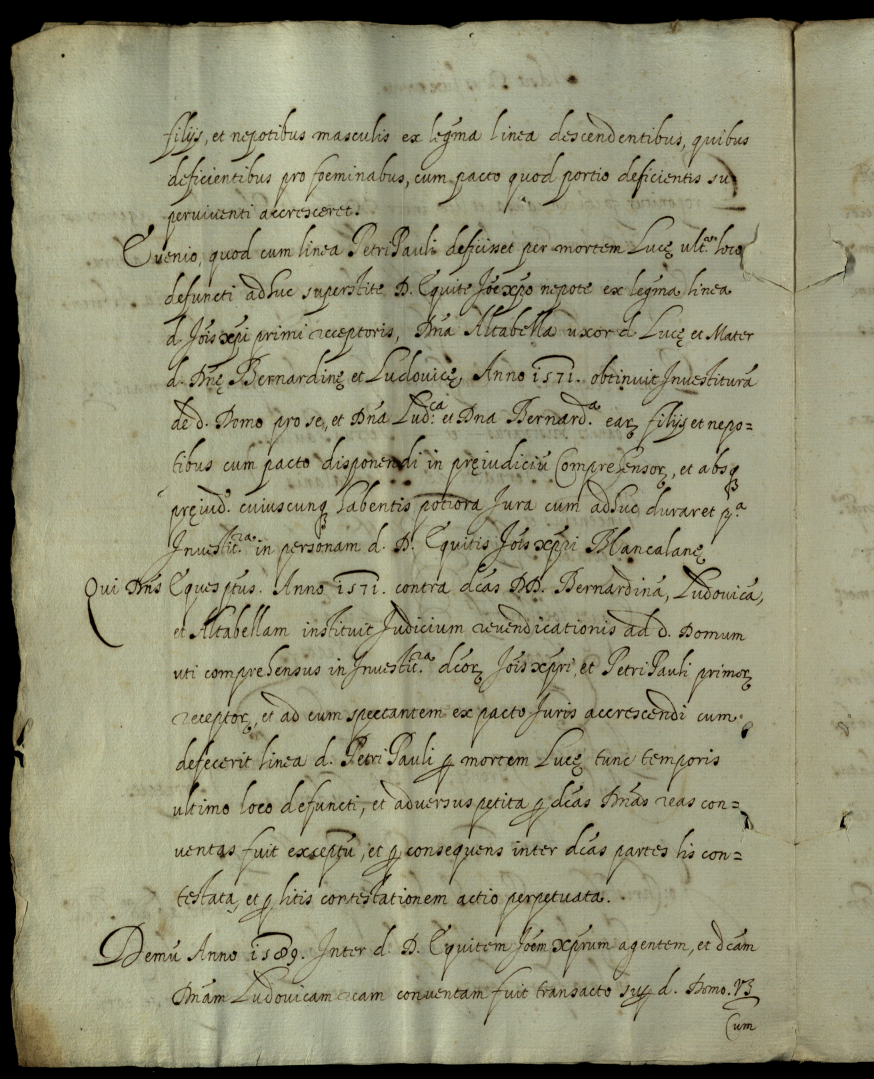 filijs, et nepotibus masculis ex legma linea descendentibus, quibus
deficientibus pro foeminabus, cum pacto quod portio deficientis su
perviventi accresceret.
Evenio, quod cum linea Petri Pauli defecisset per mortem Lucę ult.º loco
defuncti adhuc superstite D. Equite Jōe xpo nepote ex legma linea
d. Jois xpi primi receptoris, Dna Altabella uxor d. Lucę et Mater
d. Dnę Bernardinę et Ludovicę, Anno 1571. obtinuit Investiturā
de d. Domo pro se, et Dna Lud.ca et Dna Bernard.a earꝫ filijs et nepo=
tibus cum pacto disponendi in pręiudiciū Comprehensorꝫ, et absqꝫ
pręiud. cuiuscunqꝫ habentis potiora Jura cum adhuc duraret p.a
Investit.ra in personam d. D. Equitis Jois xpri Blancalanę
Qui Dns Eques ptus. Anno 1571. contra dcas DD. Bernardinā, Ludovicā,
et Altabellam instituit Judicium revendicationis ad d. Domum
uti comprehensus in Investit.ra dcorꝫ Jois xpri, et Petri Pauli primorꝫ
receptorꝫ, et ad eum spectantem ex pacto Juris accrescendi cum
defecerit linea d. Petri Pauli ꝑ mortem Lucę tunc temporis
ultimo loco defuncti, et adversus petita ꝑ dcas Dnas reas con=
ventas fuit exceptū, et ꝑ consequens inter dcas partes lis con=
testata, et ꝑ litis contestationem actio perpetuata.
Demū Anno 1589. Inter d. D. Equitem Joem xprum agentem, et dcam
Dnam Ludovicam ream conventam fuit transacto suꝑ d. Domo. Vꝫ
Cum